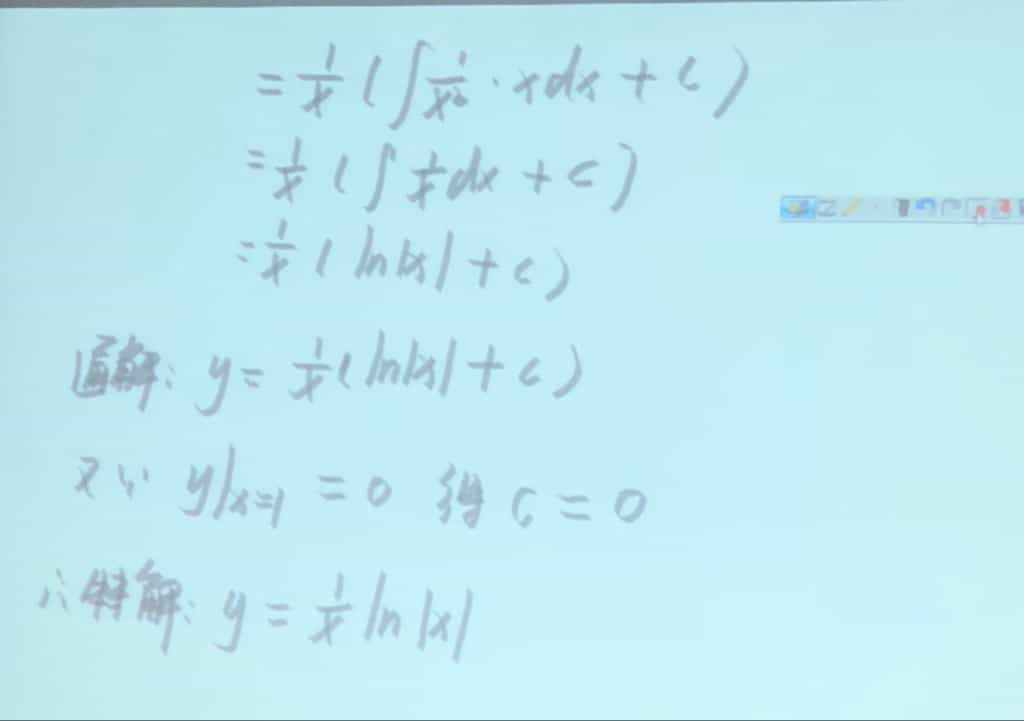 = 1/x ( ∫ 1/x² · x dx + C )
= 1/x ( ∫ 1/x dx + C )
= 1/x ( ln|x| + C )
通解: y = 1/x ( ln|x| + C )
又∵ y|x=1 = 0 得 C = 0
∴ 特解: y = 1/x ln|x|